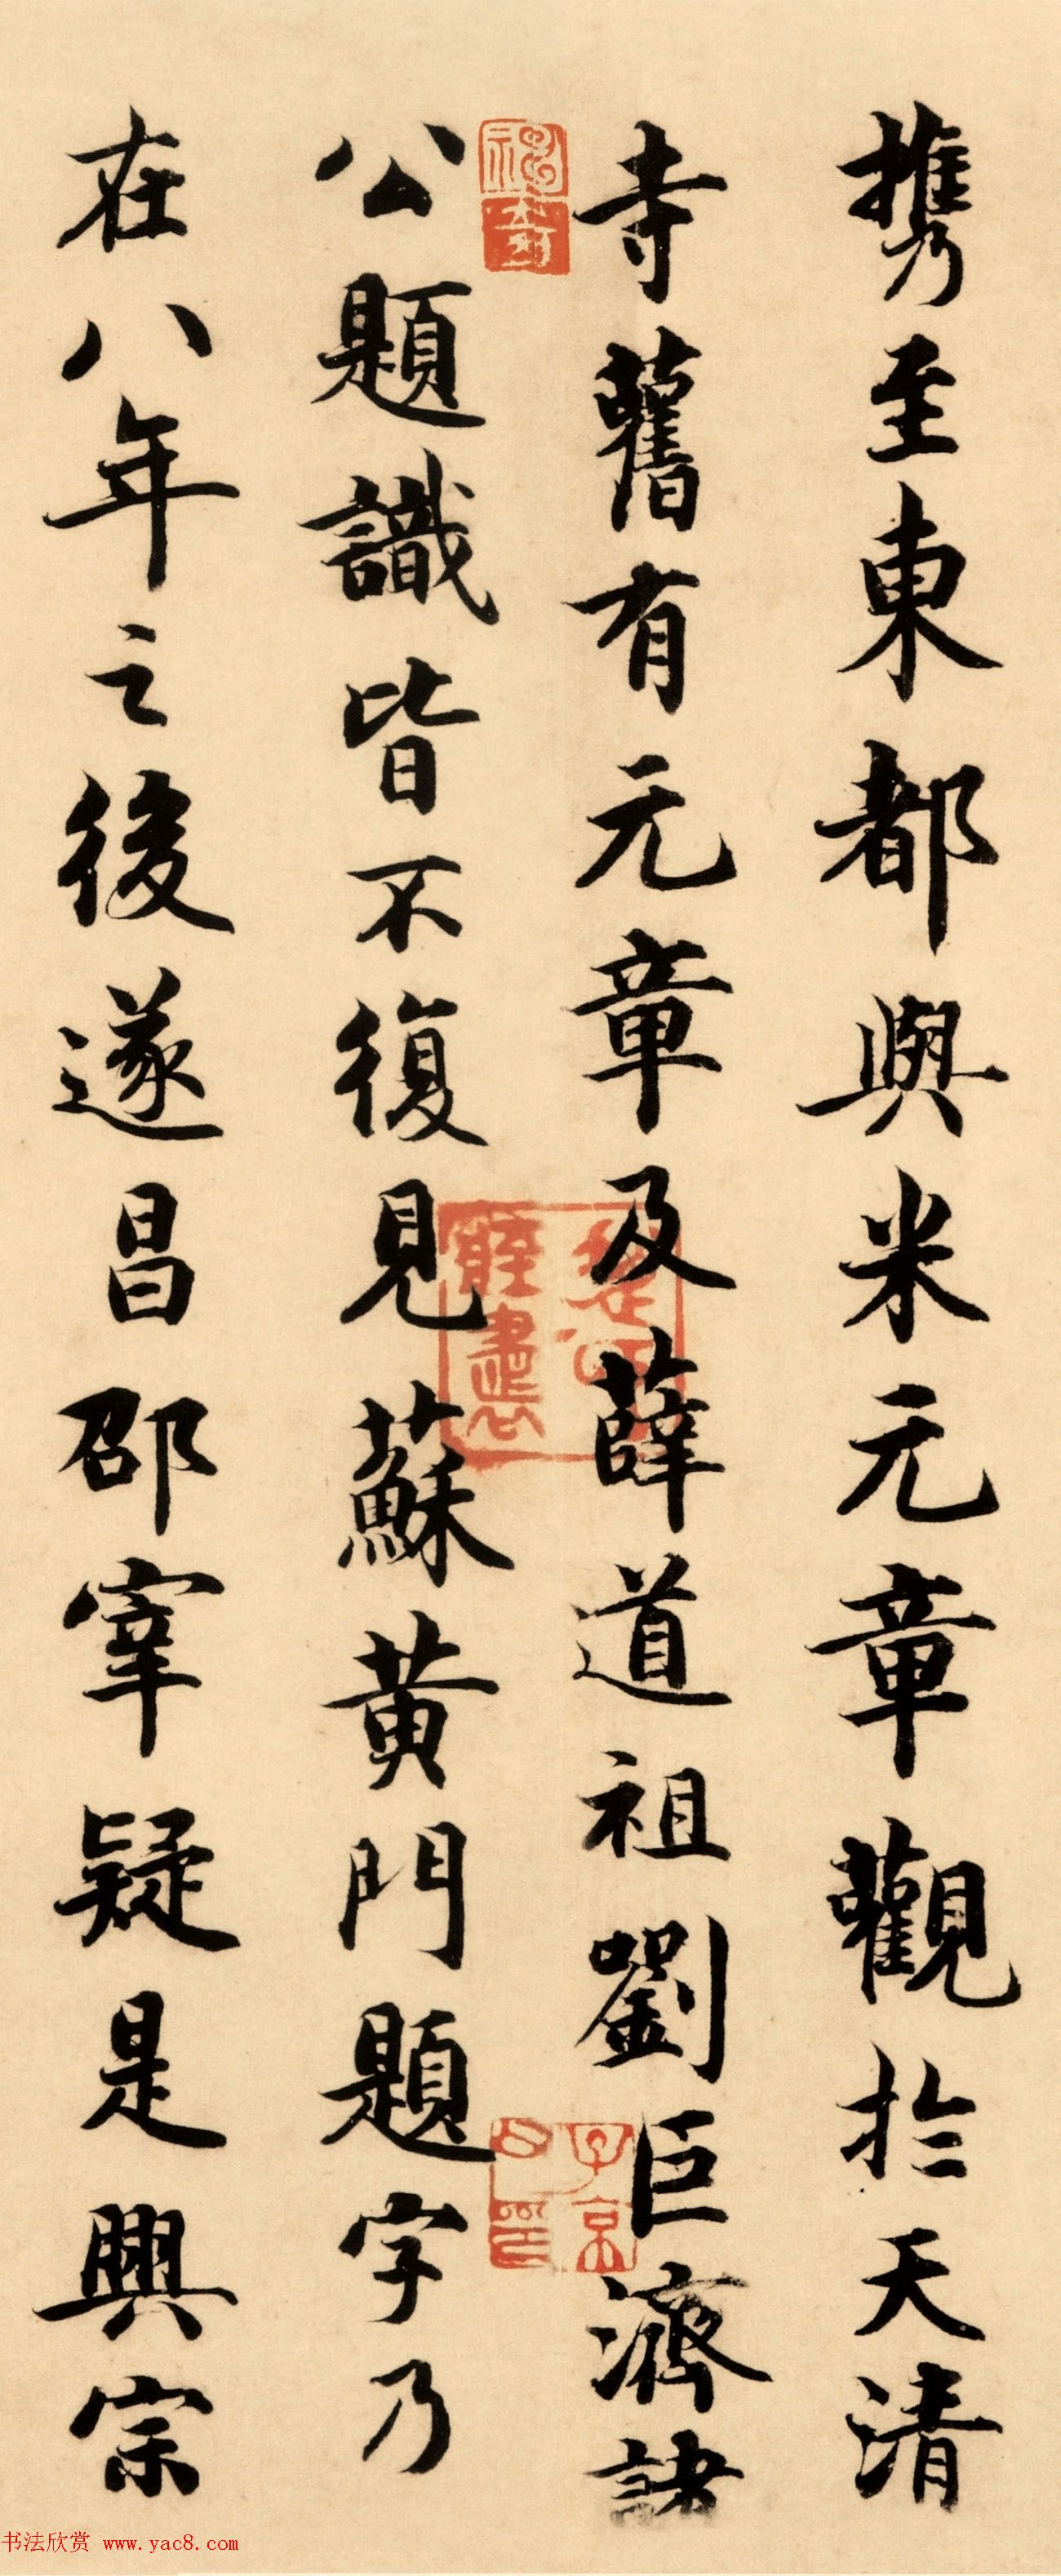 攜至東都與米元章觀於天清
寺舊有元章及薛道祖劉巨濟諸
公題識皆不復見蘇黃門題字乃
在八年之後遂昌邵宰疑是興宗
子京
书法欣赏 www.yac8.com